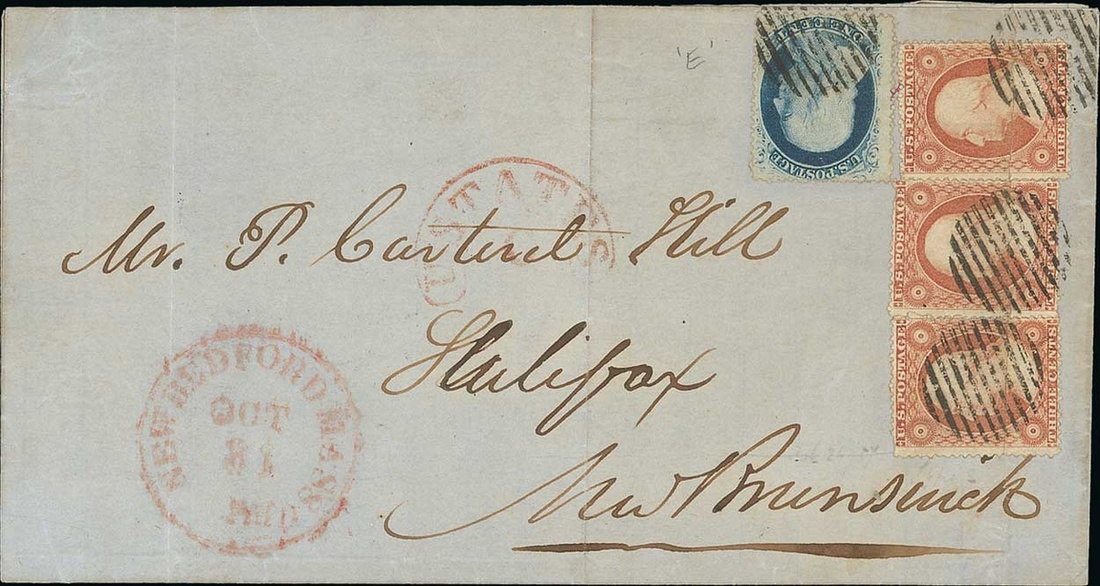 'E'
ONE CENT
U.S. POSTAGE
U.S. POSTAGE THREE CENTS
U.S. POSTAGE
U.S. POSTAGE THREE CENTS
U. STATES
Mr. P. Carteret Hill
Halifax
New Brunswick
NEW BEDFORD MASS
OCT
31
PAID